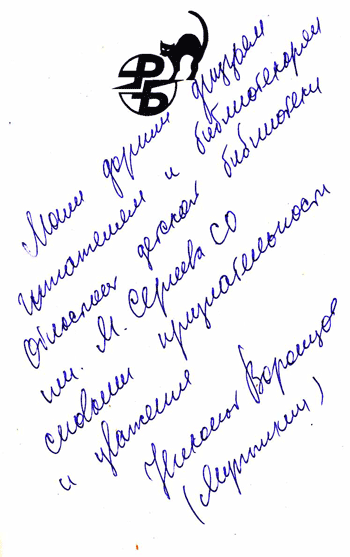 РБ
Моим дорогим друзьям
читателям и библиотекарям
Областной детской библиотеки
им. М. Сергеева СО
словами признательности
и уважения
Николай Воронцов